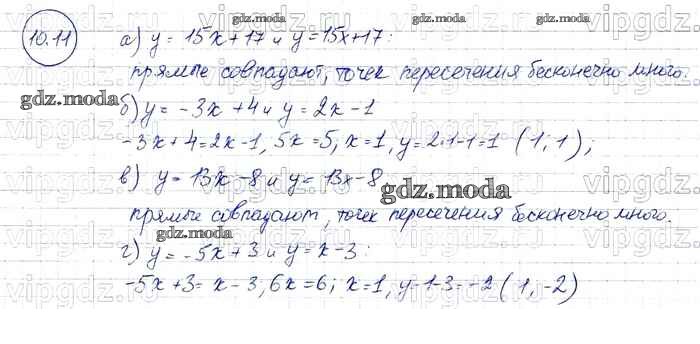 10.11
а) y = 15x + 17 и y = 15x + 17:
прямые совпадают, точек пересечения бесконечно много.
gdz.moda
б) y = -3x + 4 и y = 2x - 1
-3x + 4 = 2x - 1, 5x = 5, x = 1, y = 2·1 - 1 = 1 (1; 1);
в) y = 13x - 8 и y = 13x - 8
gdz.moda
прямые совпадают, точек пересечения бесконечно много.
gdz.moda
г) y = -5x + 3 и y = x - 3:
-5x + 3 = x - 3; 6x = 6; x = 1, y = 1 - 3 = -2 (1, -2)
vipgdz